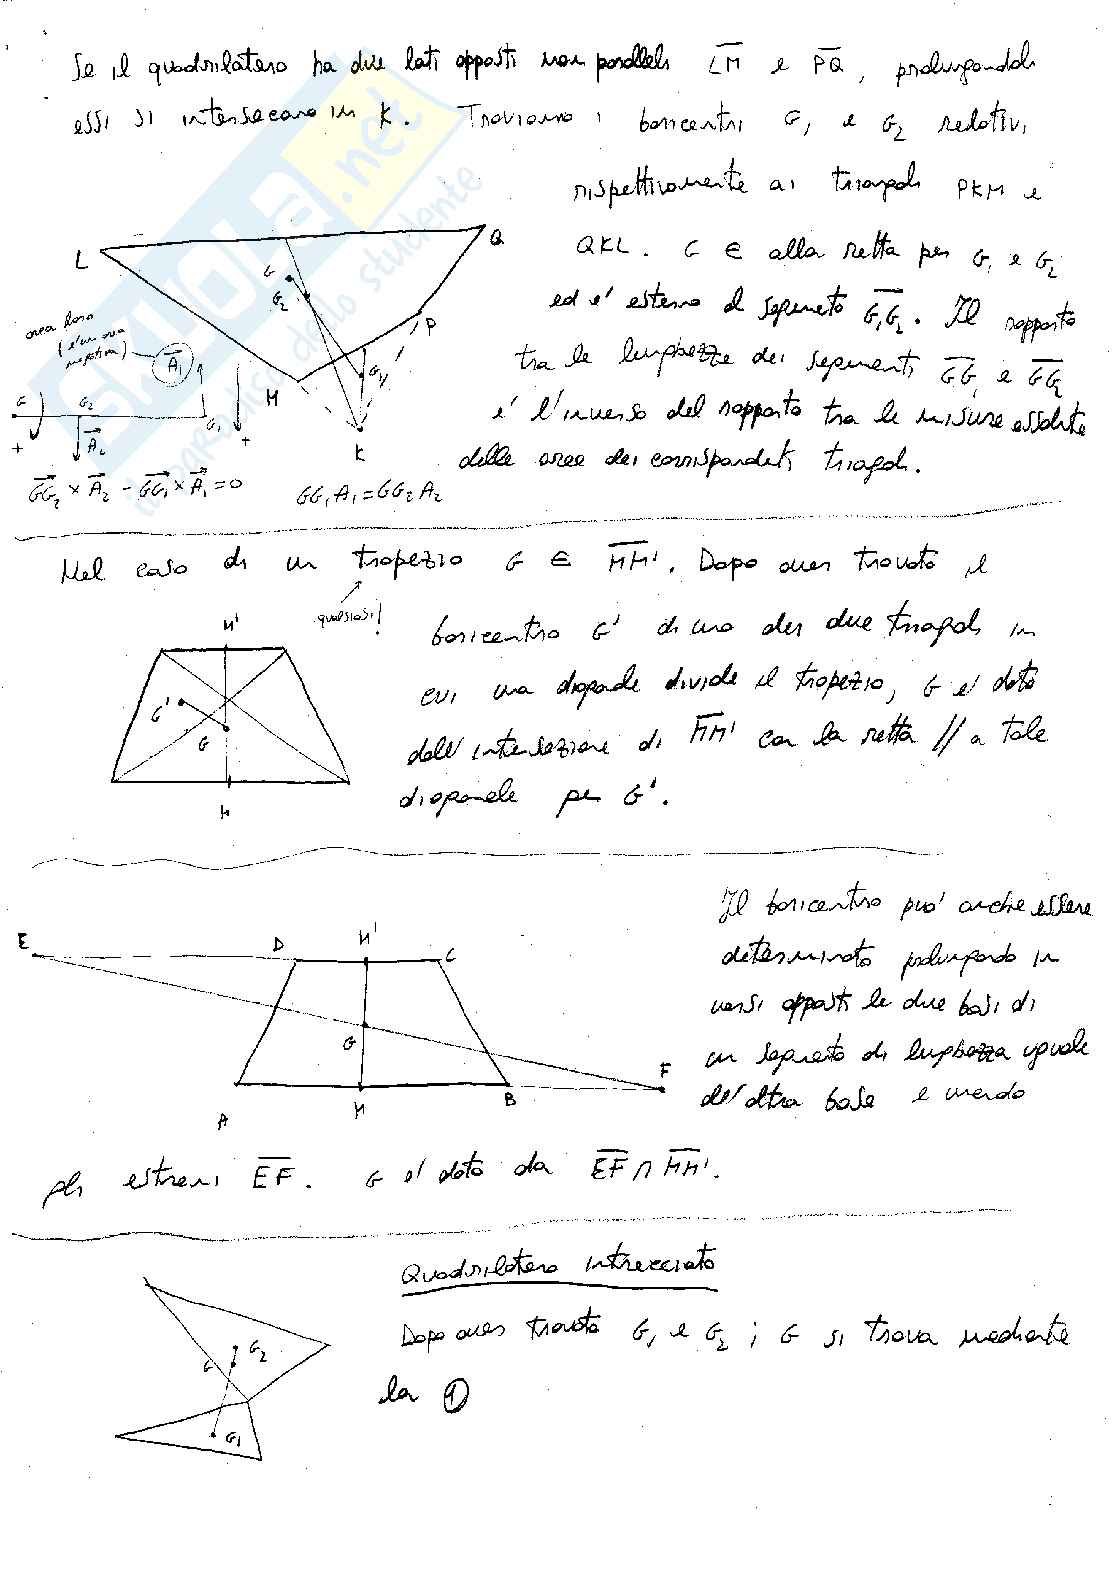 Se il quadrilatero ha due lati opposti non paralleli LM e PQ, prolungandoli
essi si intersecano in K. Troviamo i baricentri G1 e G2 relativi
rispettivamente ai triangoli PKM e
QKL. G ∈ alla retta per G1 e G2
ed e' esterno al segmento G1G2. Il rapporto
tra le lunghezze dei segmenti GG1 e GG2
e' l'inverso del rapporto tra le misure assolute
delle aree dei corrispondenti triangoli.
L
Q
G
G2
P
G1
M
K
area loro
negativa)
A1
G
G2
G1
+
A2
+
GG2 × A2 - GG1 × A1 = 0
GG1 A1 = GG2 A2
Nel caso di un trapezio G ∈ MM'. Dopo aver trovato il
qualsiasi!
baricentro G' di uno dei due triangoli in
cui una diagonale divide il trapezio, G e' dato
dall'intersezione di MM' con la retta // a tale
diagonale per G'.
M'
G'
G
M
Il baricentro puo' anche essere
determinato prolungando in
versi opposti le due basi di
un segmento di lunghezza uguale
all'altra base e unendo
gli estremi EF. G e' dato da EF ∩ MM'.
E
D
M'
C
G
F
A
M
B
Quadrilatero intrecciato
Dopo aver trovato G1 e G2 ; G si trova mediante
la ①
G
G2
G1
skuola.net
il paradiso dello studente